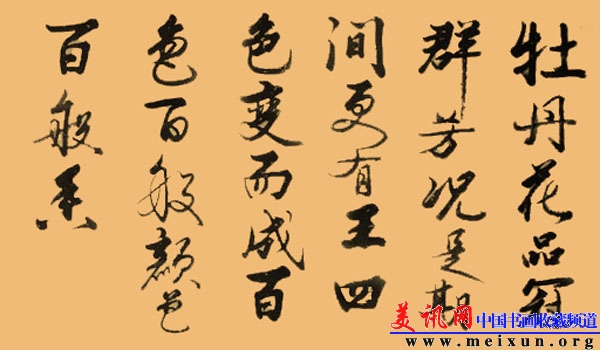 牡丹花品冠
群芳况是期
间更有王四
色变而成百
色百般颜色
百般香
美讯网 中国书画收藏频道
www.meixun.org